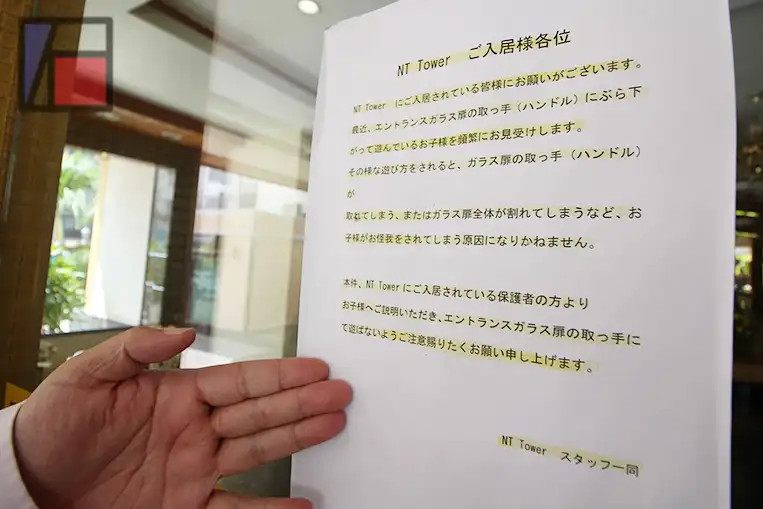 NT Tower ご入居様各位
NT Tower にご入居されている皆様にお願いがございます。
最近、エントランスガラス扉の取っ手（ハンドル）にぶら下
がって遊んでいるお子様を頻繁にお見受けします。
その様な遊び方をされると、ガラス扉の取っ手（ハンドル）
が
取れてしまう、またはガラス扉全体が割れてしまうなど、お
子様がお怪我をされてしまう原因になりかねません。
本件、NT Tower にご入居されている保護者の方より
お子様へご説明いただき、エントランスガラス扉の取っ手に
て遊ばないようご注意賜りたくお願い申し上げます。
NT Tower スタッフ一同